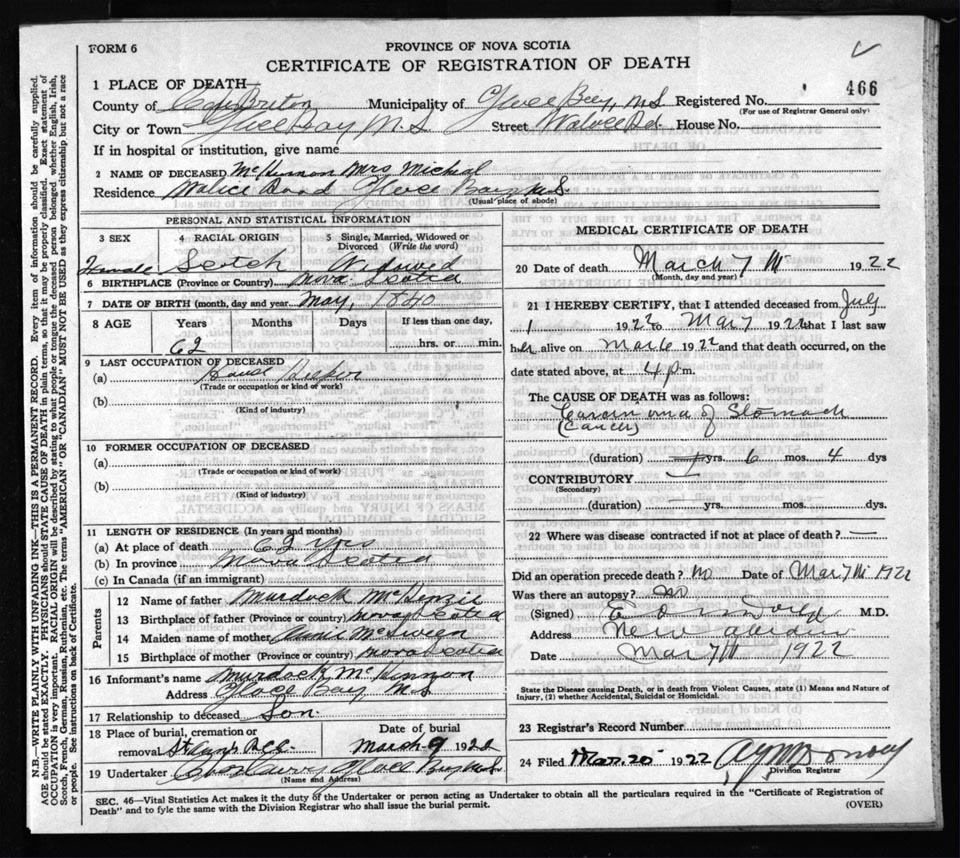 FORM 6
PROVINCE OF NOVA SCOTIA
CERTIFICATE OF REGISTRATION OF DEATH
466
1 PLACE OF DEATH
County of Cape Breton Municipality of Glace Bay, N.S Registered No.
(For use of Registrar General only)
City or Town Glace Bay N.S Street Wallace Rd. House No.
If in hospital or institution, give name
2 NAME OF DECEASED McKinnon Mrs Michael
Residence Wallace Road Glace Bay N.S.
(Usual place of abode)
PERSONAL AND STATISTICAL INFORMATION
3 SEX 4 RACIAL ORIGIN 5 Single, Married, Widowed or Divorced (Write the word)
Female Scotch Widowed
6 BIRTHPLACE (Province or Country) Nova Scotia
7 DATE OF BIRTH (month, day and year) May, 1840
8 AGE Years Months Days If less than one day,
62 hrs. or min.
9 LAST OCCUPATION OF DECEASED
(a) House Keeper
(Trade or occupation or kind of work)
(b)
(Kind of industry)
10 FORMER OCCUPATION OF DECEASED
(a)
(Trade or occupation or kind of work)
(b)
(Kind of industry)
11 LENGTH OF RESIDENCE (In years and months)
(a) At place of death 62 yrs
(b) In province Nova Scotia
(c) In Canada (if an immigrant)
Parents
12 Name of father Murdock McKenzie
13 Birthplace of father (Province or country) Nova Scotia
14 Maiden name of mother McSween
15 Birthplace of mother (Province or country) Nova Scotia
16 Informant's name Murdock McKinnon
Address Glace Bay N.S
17 Relationship to deceased Son
18 Place of burial, cremation or removal Date of burial
March 9 1922
19 Undertaker Glace Bay N.S.
(Name and Address)
MEDICAL CERTIFICATE OF DEATH
20 Date of death March 7th 1922
(Month, day and year)
21 I HEREBY CERTIFY, that I attended deceased from July
1 1922 to Mar 7 1922 that I last saw
her alive on Mar 6 1922 and that death occurred, on the
date stated above, at 4 p.m.
The CAUSE OF DEATH was as follows:
Carcinoma of Stomach
(Cancer)
(duration) yrs. 6 mos. 4 dys
CONTRIBUTORY
(Secondary)
(duration) yrs. mos. dys.
22 Where was disease contracted if not at place of death?
Did an operation precede death? No Date of Mar 7th 1922
Was there an autopsy? No
(Signed) M.D.
Address New Aberdeen
Date Mar 7th 1922
State the Disease causing Death, or in death from Violent Causes, state (1) Means and Nature of Injury, (2) whether Accidental, Suicidal or Homicidal.
23 Registrar's Record Number
24 Filed Mar. 20 1922
Division Registrar
SEC. 46—Vital Statistics Act makes it the duty of the Undertaker or person acting as Undertaker to obtain all the particulars required in the "Certificate of Registration of
Death" and to fyle the same with the Division Registrar who shall issue the burial permit. (OVER)
N.B.—WRITE PLAINLY WITH UNFADING INK—THIS IS A PERMANENT RECORD. Every item of information should be carefully supplied.
AGE should be stated EXACTLY. PHYSICIANS should STATE CAUSE OF DEATH in plain terms, so that it may be properly classified. Exact statement of
OCCUPATION is very important. RACIAL ORIGIN will be described by stating to what people or tongue the deceased person belonged, whether English, Irish,
Scotch, French, German, Russian, Ruthenian, etc. The terms "AMERICAN" OR "CANADIAN" MUST NOT BE USED as they express citizenship but not a race
or people. See instructions on back of Certificate.